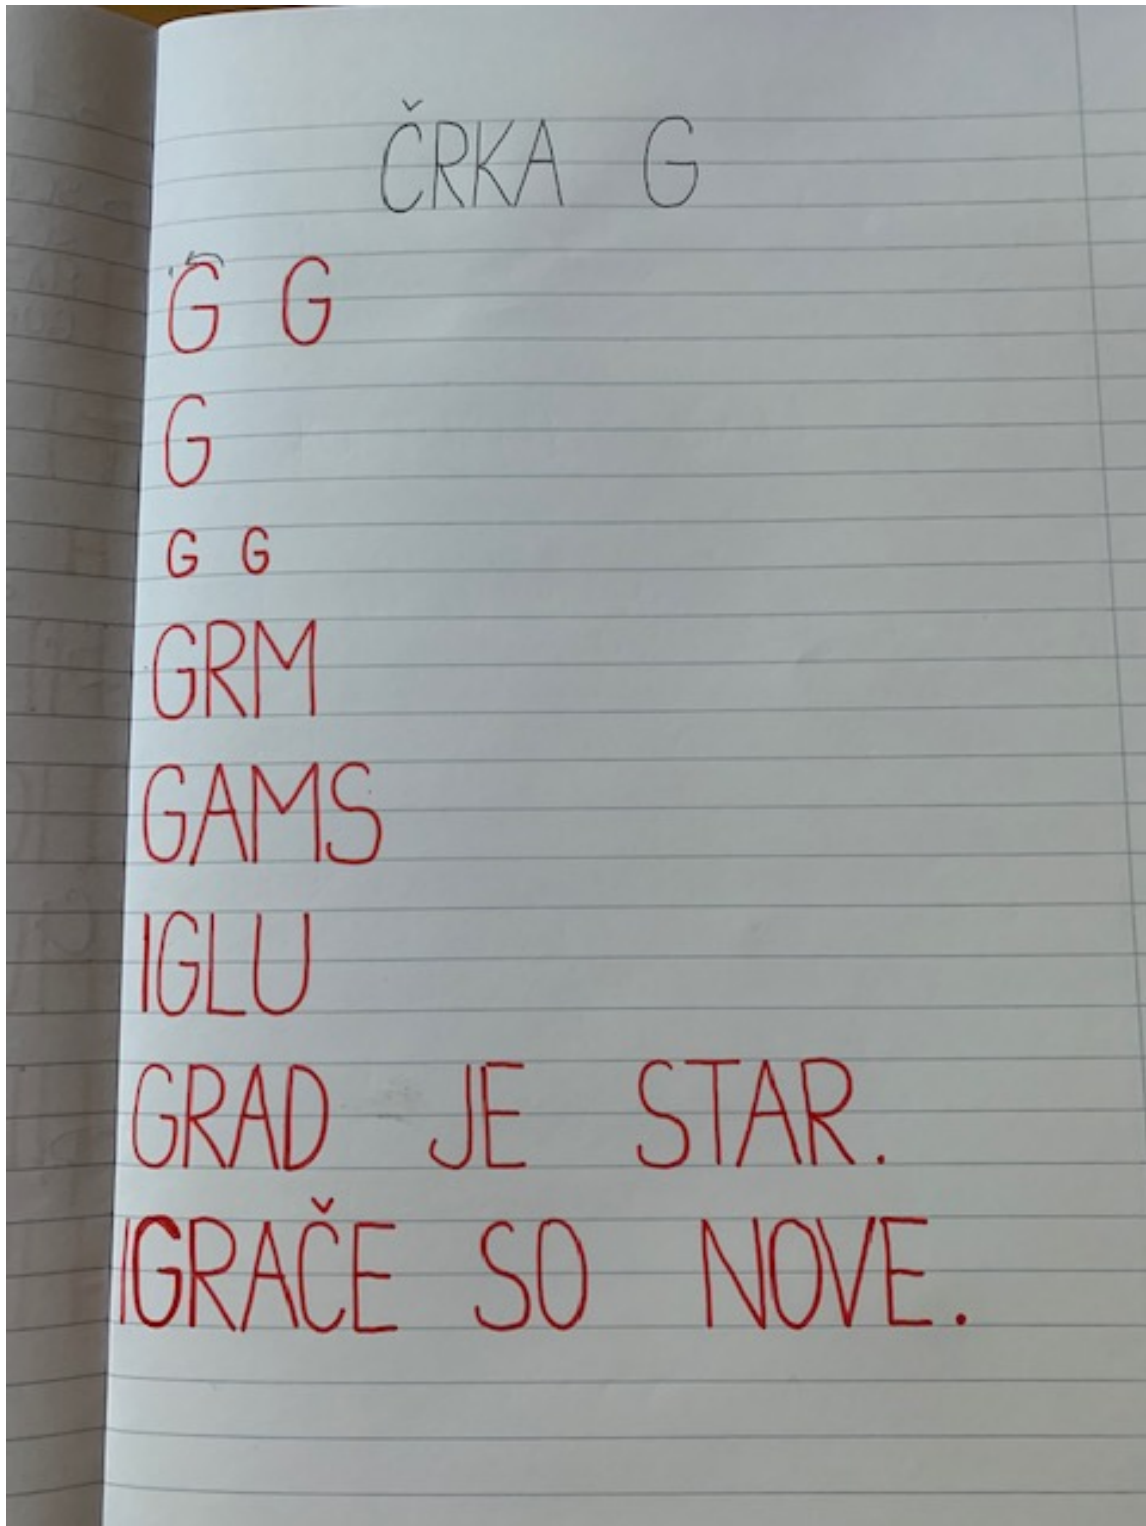 ČRKA G
G G
G
G G
GRM
GAMS
IGLU
GRAD JE STAR.
IGRAČE SO NOVE.